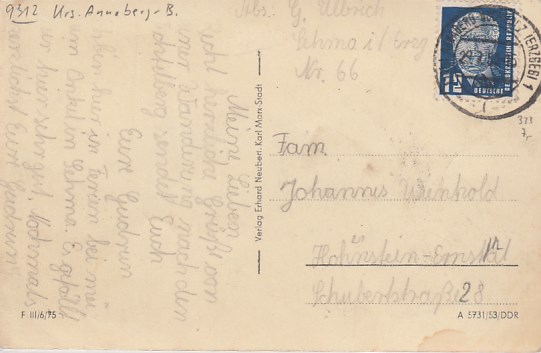 9312 Krs. Annaberg-B.
Abs: G. Ulbrich
Sehma i/Erzg
Nr. 66
(ERZGEB) 1
15
DEUTSCHE
DEMOKRATISCHE REPUBLIK
378
7,-
Meine Lieben
recht herzliche Grüße von
einer Wanderung nach dem
Fichtelberg sendet Euch
Eure Gudrun
hier zu Ferien bei
Onkel in Sehma. Es gefällt
hier sehr gut. Nochmals
herzlichst Eure Gudrun
Verlag Erhard Neubert, Karl Marx-Stadt
Fam
Johannes Weinhold
Hohnstein-Ernstthl
Schubertstraße 28
F III/6/75
A 5731/53/DDR